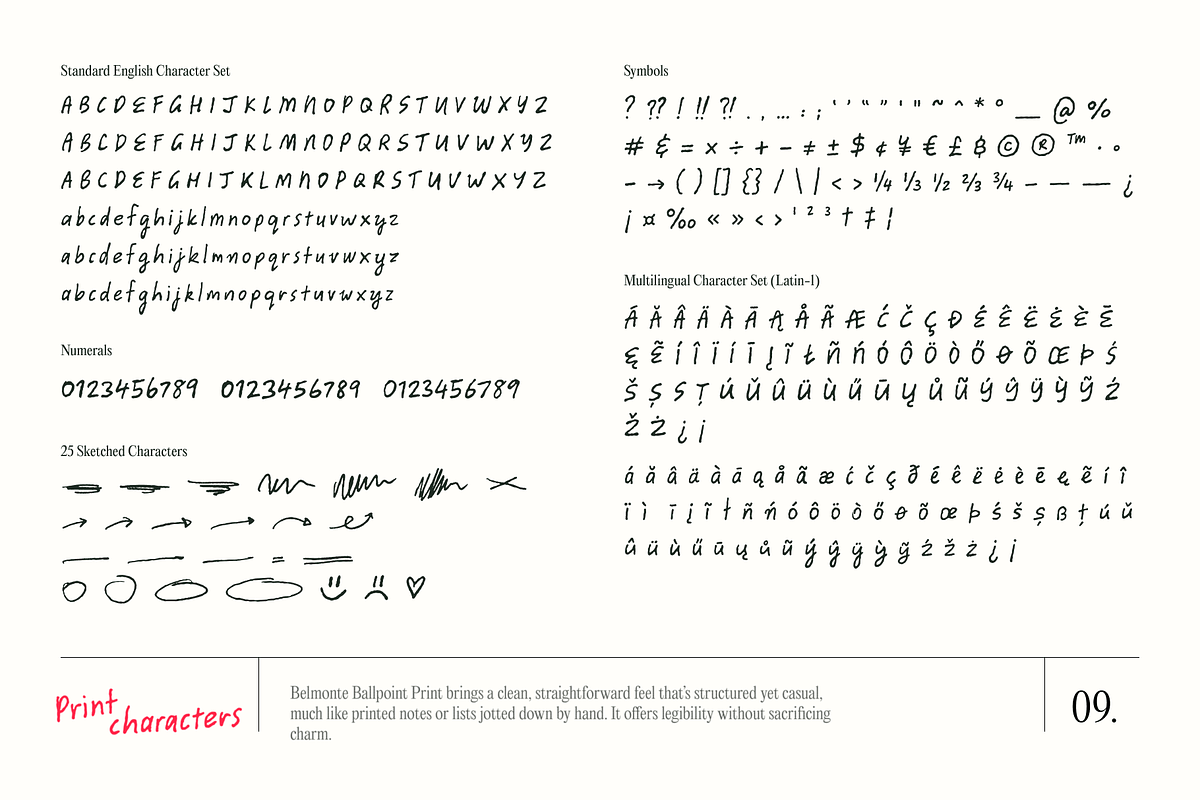 Standard English Character Set
A B C D E F G H I J K L M N O P Q R S T U V W X Y Z
A B C D E F G H I J K L M N O P Q R S T U V W X Y Z
A B C D E F G H I J K L M N O P Q R S T U V W X Y Z
a b c d e f g h i j k l m n o p q r s t u v w x y z
a b c d e f g h i j k l m n o p q r s t u v w x y z
a b c d e f g h i j k l m n o p q r s t u v w x y z
Numerals
0123456789 0123456789 0123456789
25 Sketched Characters
Symbols
? ?? ! !! ?! . , … : ; ‘ ’ “ ” ' " ~ ^ * ° _ @ %
# & = × ÷ + − ≠ ± $ ¢ ¥ € £ ฿ © ® ™ · °
- → ( ) [ ] { } / \ | < > ¼ ⅓ ½ ⅔ ¾ - – — ¿
¡ ¤ ‰ « » < > ¹ ² ³ † ‡ ¦
Multilingual Character Set (Latin-1)
Á Ă Â Ä À Ā Ą Å Ã Æ Ć Č Ç Ð É Ê Ë Ė È Ē
Ę Ẽ Í Î Ï Í Ī Į Ĩ Ł Ñ Ń Ó Ô Ö Ò Ő Ø Õ Œ Þ Ś
Š Ş S Ț Ú Ŭ Û Ü Ù Ű Ū Ų Ů Ũ Ý Ŷ Ÿ Ỳ Ỹ Ź
Ž Ż ¿ ¡
á ă â ä à ā ą å ã æ ć č ç ð é ê ë ė è ē ę ẽ í î
ï ì ī į ĩ ł ñ ń ó ô ö ò ő ø õ œ þ ś š ş ß ț ú ŭ
û ü ù ű ū ų ů ũ ý ŷ ÿ ỳ ỹ ź ž ż ¿ ¡
Print
characters
Belmonte Ballpoint Print brings a clean, straightforward feel that’s structured yet casual,
much like printed notes or lists jotted down by hand. It offers legibility without sacrificing
charm.
09.